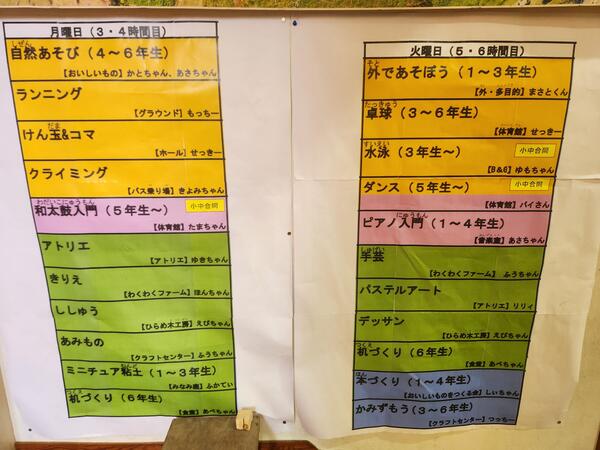 月曜日（3・4時間目）
しぜん
自然あそび（4～6年生）
【おいしいもの】かとちゃん、あさちゃん
ランニング
【グラウンド】もっちー
だま
けん玉&コマ
【ホール】せっきー
クライミング
【バス乗り場】きよみちゃん
わだいこにゅうもん
和太鼓入門（5年生～）
小中合同
【体育館】たまちゃん
アトリエ
【アトリエ】ゆきちゃん
きりえ
【わくわくファーム】ほんちゃん
ししゅう
【ひらめ木工房】えびちゃん
あみもの
【クラフトセンター】ふうちゃん
ねんど
ミニチュア粘土（1～3年生）
【みなみ座】ふかてい
つくえ
机づくり（6年生）
【食堂】あべちゃん
火曜日（5・6時間目）
そと
外であそぼう（1～3年生）
【外・多目的】まさとくん
たっきゅう
卓球（3～6年生）
【体育館】せっきー
すいえい
水泳（3年生～）
小中合同
【B&G】ゆもちゃん
ダンス（5年生～）
小中合同
【体育館】パイさん
にゅうもん
ピアノ入門（1～4年生）
【音楽室】あさちゃん
しゅげい
手芸
【わくわくファーム】ふうちゃん
パステルアート
【アトリエ】リリィ
デッサン
【ひらめ木工房】えびちゃん
つくえ
机づくり（6年生）
【食堂】あべちゃん
ほん
本づくり（1～4年生）
【おいしいものをつくる会】しぃちゃん
かみずもう（3～6年生）
【クラフトセンター】つっちー